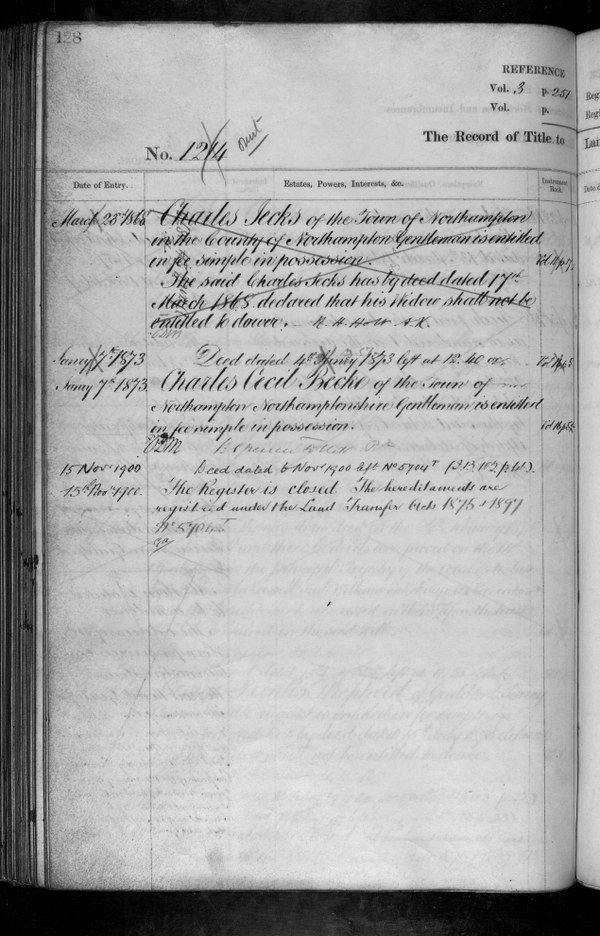 128
REFERENCE
Vol. 3 p. 251
Vol. p.
The Record of Title to
No. 1214
Date of Entry.
Estates, Powers, Interests, &c.
Instrument Book.
March 23rd 1868
Charles Jecks of the Town of Northampton
in the County of Northampton Gentleman is entitled
in fee simple in possession.
The said Charles Jecks has by deed dated 17th
March 1868 declared that his Widow shall not be
entitled to dower.
Janry 7th 1873
Deed dated 4th Janry 1873 left at 12.40
Janry 7th 1873
Charles Cecil Becke of the Town of
Northampton Northamptonshire Gentleman is entitled
in fee simple in possession.
15 Novr 1900
Deed dated 6 Novr 1900 No 5704T
15th Novr 1900.
The Register is closed. The hereditaments are
registered under the Land Transfer Acts 1875 & 1897